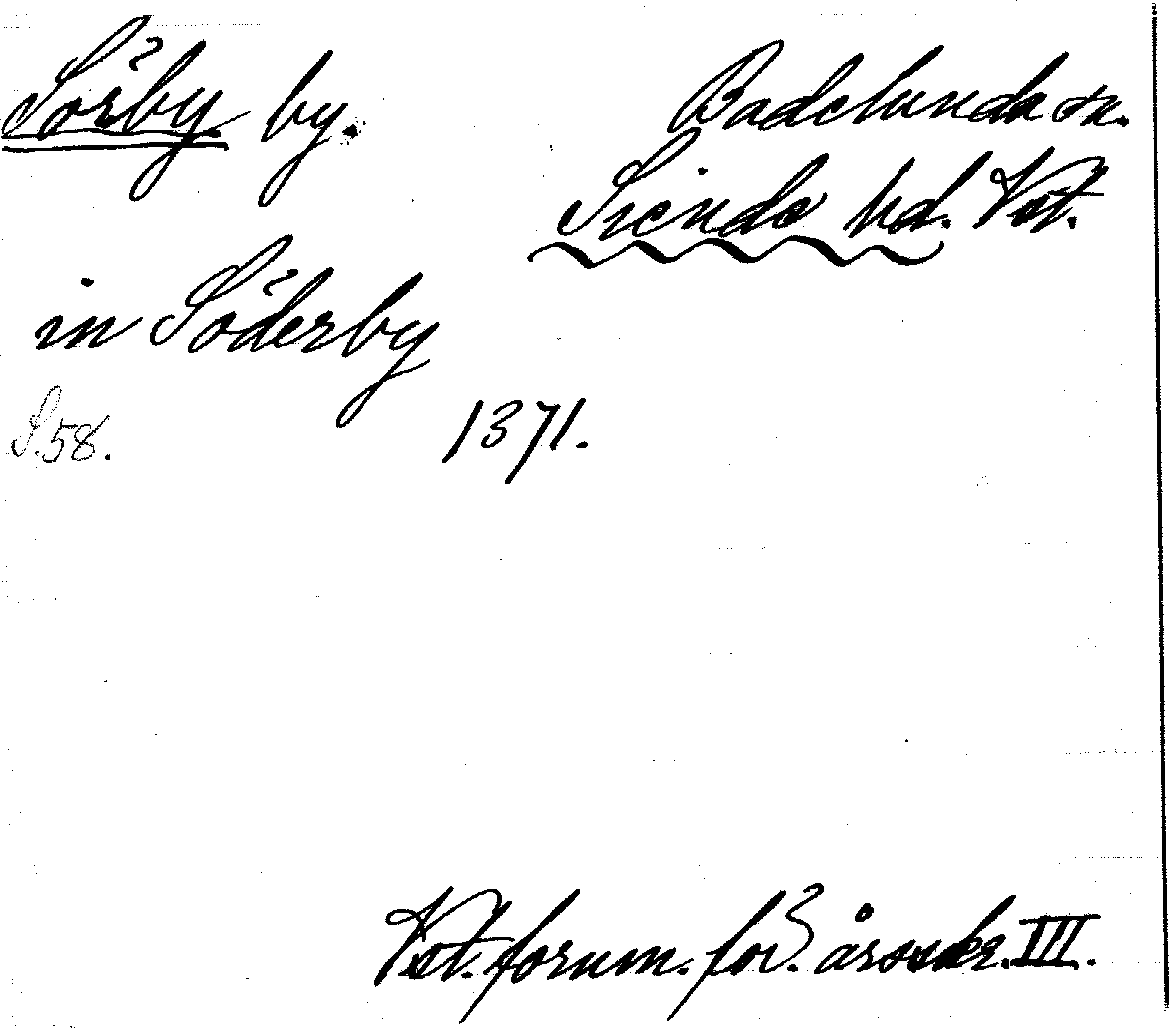 Sörby by.
Badelunda sn.
Siende hd. Vst.
in Söderby
S. 58.
1371.
Vst. fornm. för. årsskr. III.